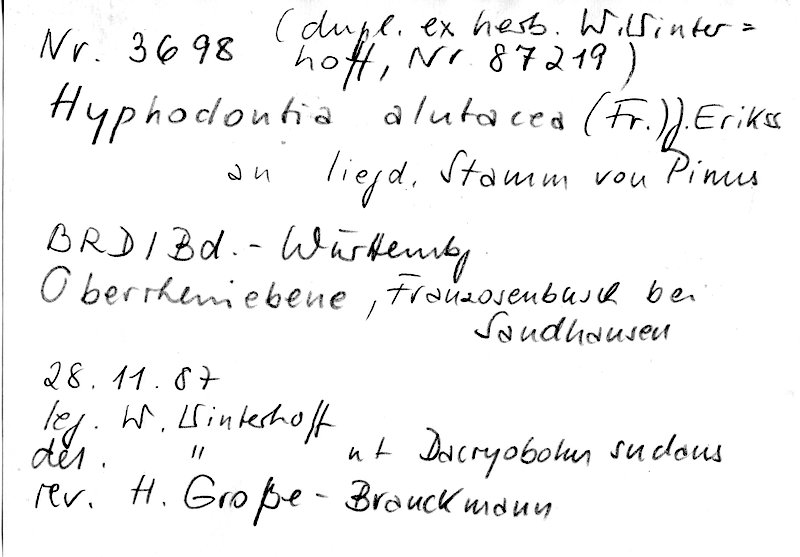 Nr. 3698 (dupl. ex herb. W. Winter=
hoff, Nr. 87219)
Hyphodontia alutacea (Fr.) J. Erikss
an liegd. Stamm von Pinus
BRD/Bd.-Württembg
Oberrheinebene, Franzosenbusch bei
Sandhausen
28.11.87
leg. W. Winterhoff
det. " ut Dacryobolus sudans
rev. H. Große-Brauckmann